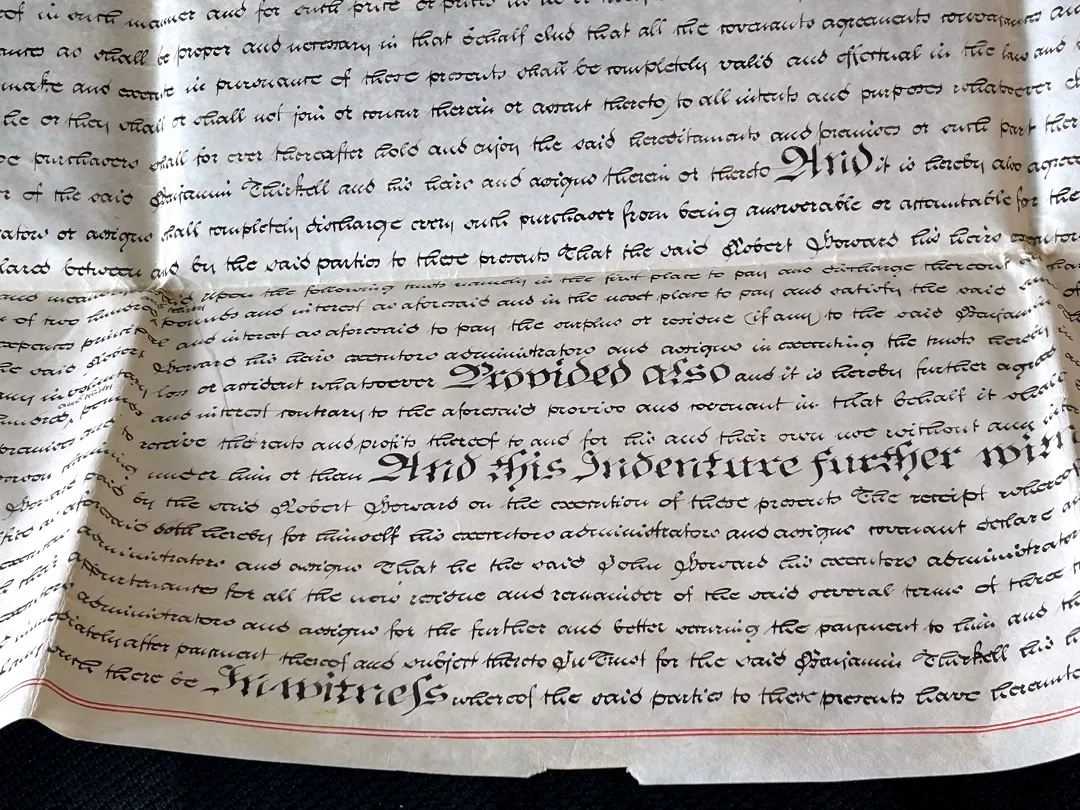 of in such manner and for such price or prices
as shall be proper and necessary in that behalf And that all the covenants agreements conveyances
make and execute in pursuance of these presents shall be completely valid and effectual in the law and
he or they shall or shall not join or concur therein or assent thereto) to all intents and purposes whatsoever
purchasers shall for ever thereafter hold and enjoy the said hereditaments and premises or such part
of the said Benjamin Thirkell and his heirs and assigns therein or thereto And it is hereby also
or assigns shall completely discharge every such purchaser from being answerable or accountable for the
between and by the said parties to these presents That the said Robert Howard his heirs
upon the following trusts namely in the first place to pay and discharge thereout
of two hundred pounds and interest as aforesaid and in the next place to pay and satisfy the said
and interest as aforesaid to pay the surplus or residue (if any) to the said Benjamin
Howard his heirs executors administrators and assigns in executing the trusts hereby
loss or accident whatsoever Provided also and it is hereby further
and interest contrary to the aforesaid proviso and covenant in that behalf it shall
to receive the rents and profits thereof to and for his and their own use without any
under him or them And this Indenture further
by the said Robert Howard on the execution of these presents The receipt whereof
doth hereby for himself his executors administrators and assigns covenant declare
administrators and assigns That he the said John Howard his executors administrators
appurtenances for all the now residue and remainder of the said several terms of three
administrators and assigns for the further and better securing the payment to him and
after payment thereof and subject thereto In Trust for the said Benjamin Thirkell his
such there be In witness whereof the said parties to these presents have hereunto